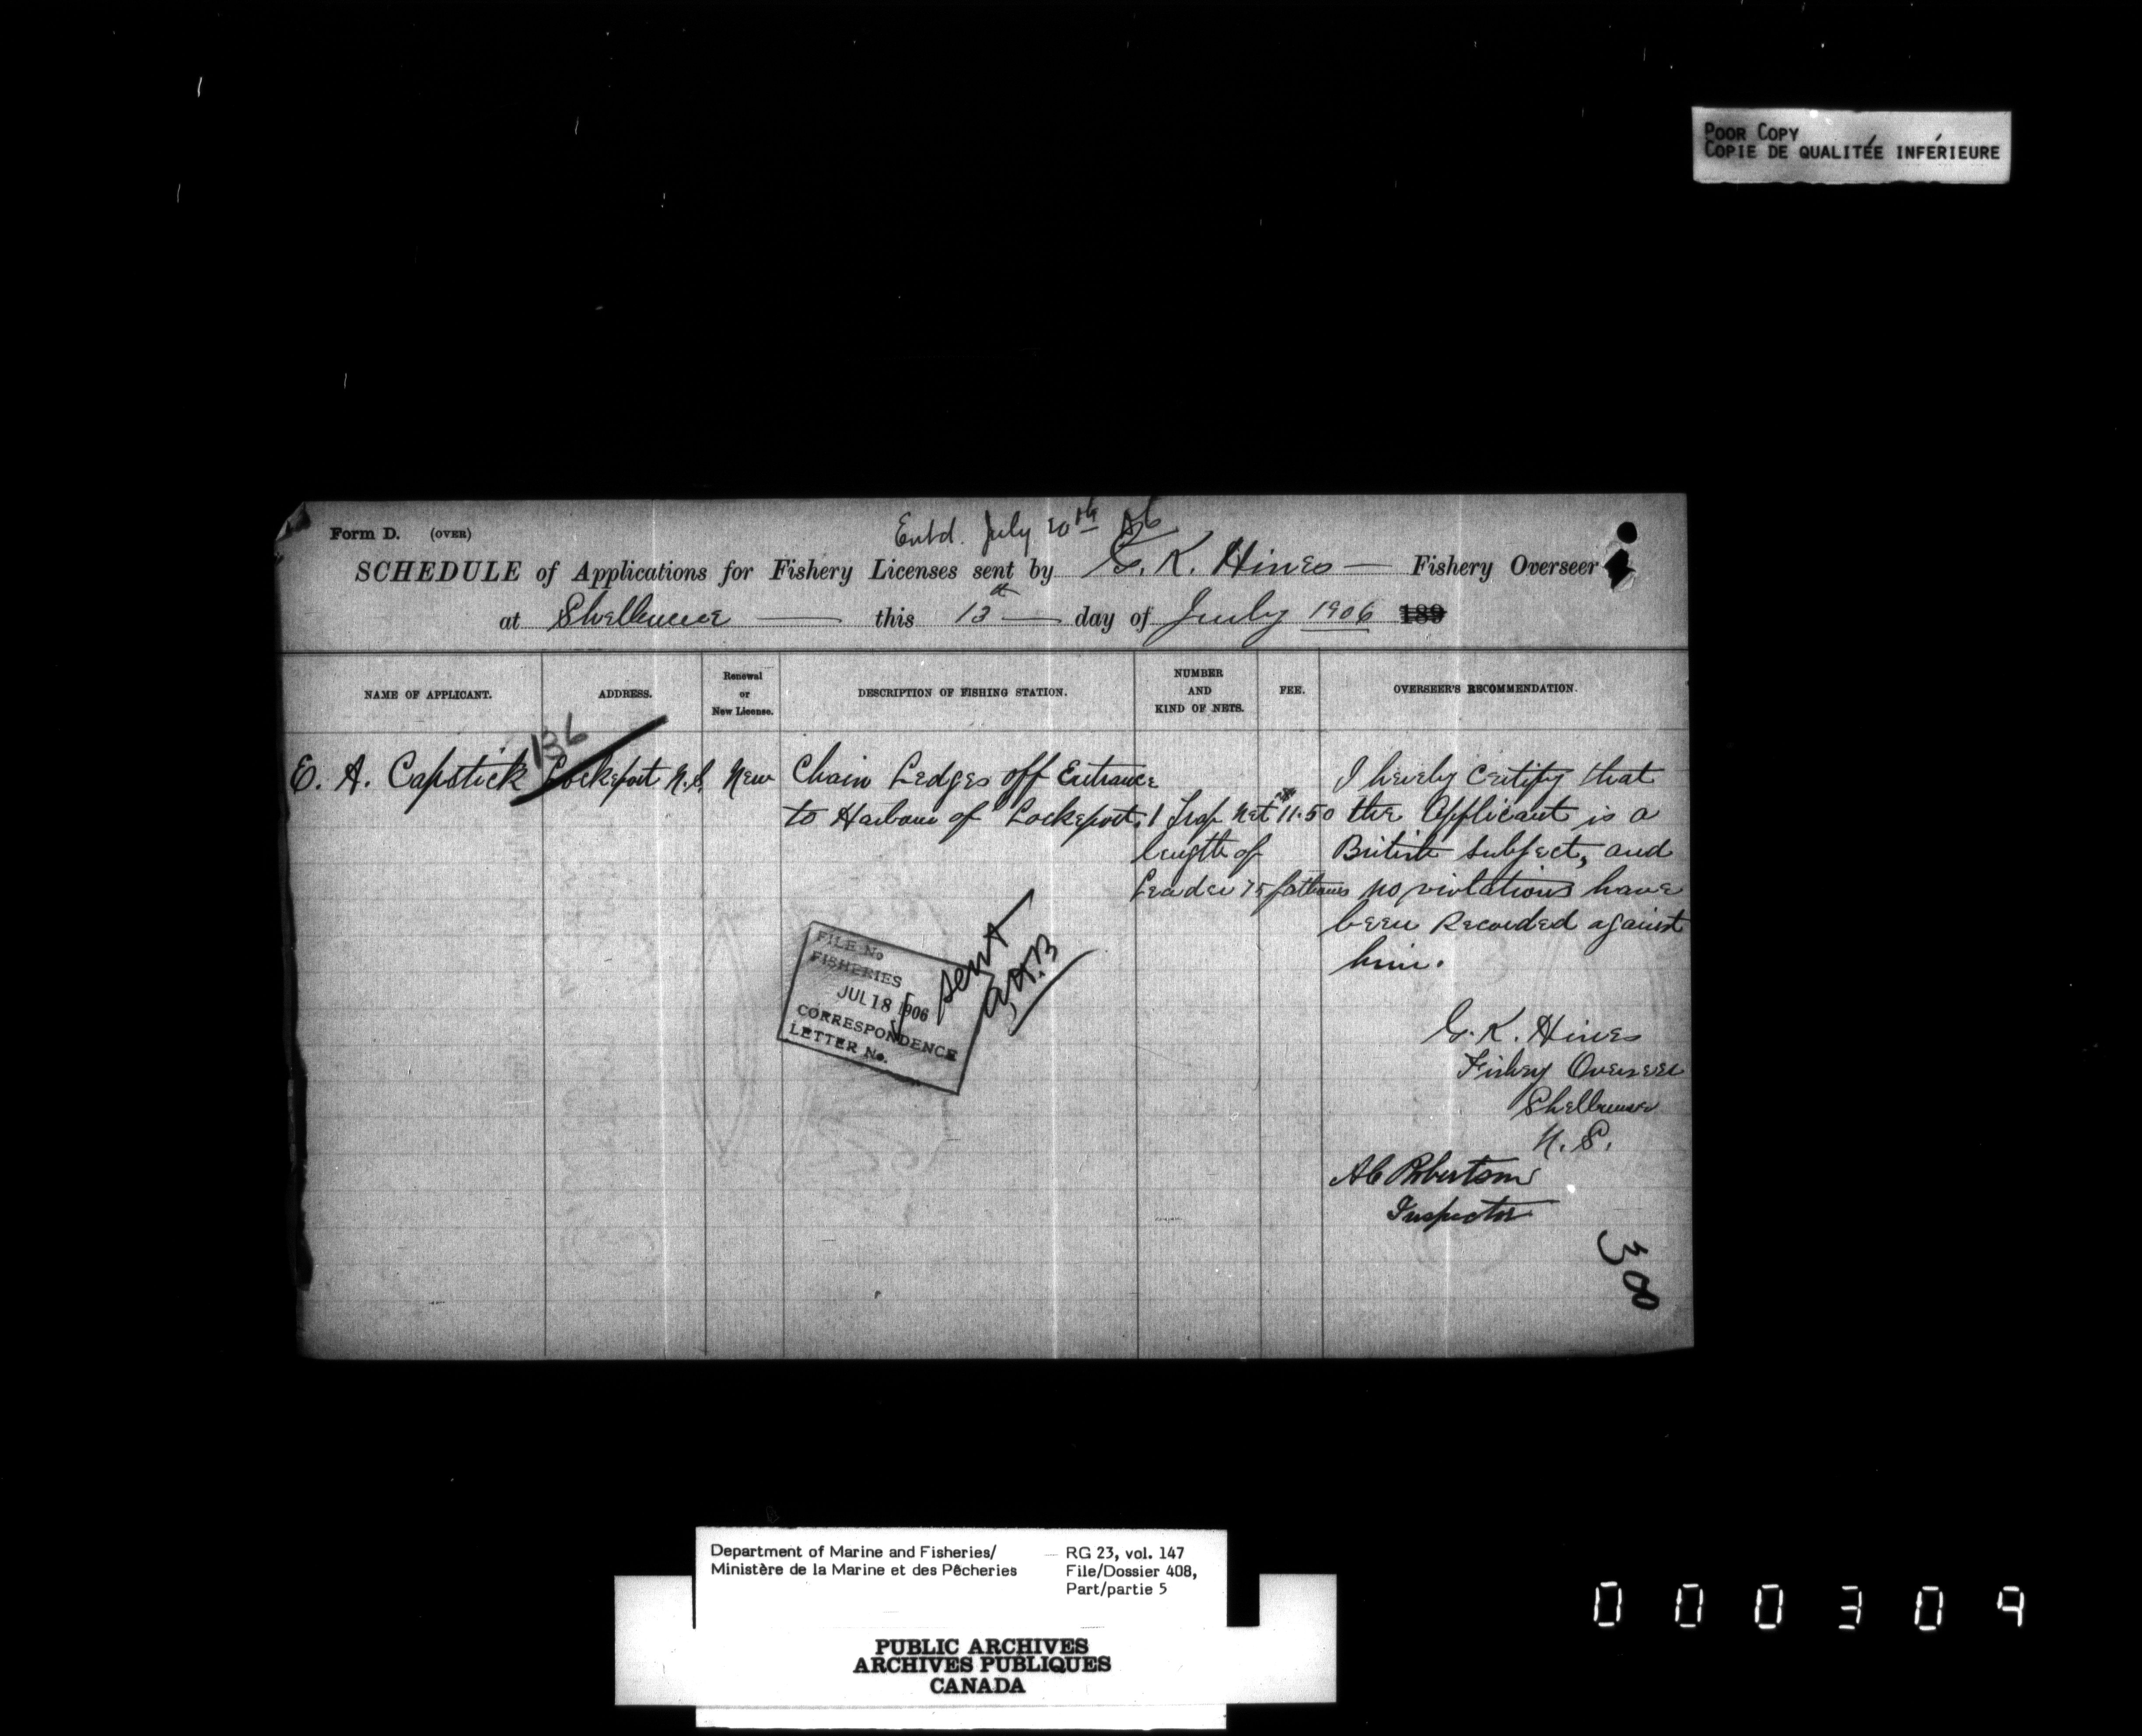 POOR COPY
COPIE DE QUALITÉE INFÉRIEURE
Form D. (OVER)
Entd. July 20th
SCHEDULE of Applications for Fishery Licenses sent by G. K. Hines — Fishery Overseer
at Shelburne — this 13th — day of July 1906 189
NAME OF APPLICANT.
ADDRESS.
Renewal
or
New License.
DESCRIPTION OF FISHING STATION.
NUMBER
AND
KIND OF NETS.
FEE.
OVERSEER'S RECOMMENDATION.
136
E. A. Capstick
Lockeport N.S.
New
Chain Ledges off Entrance
to Harbour of Lockeport.
1 Trap Net
length of
Leader 75 fathoms
$11.50
I hereby Certify that
the Applicant is a
British subject, and
no violations have
been Recorded against
him.
FILE No
FISHERIES
JUL 18 1906
CORRESPONDENCE
LETTER No.
sent
G. K. Hines
Fishery Overseer
Shelburne
N. S.
AC Robertson
Inspector
308
Department of Marine and Fisheries/
Ministère de la Marine et des Pêcheries
RG 23, vol. 147
File/Dossier 408,
Part/partie 5
PUBLIC ARCHIVES
ARCHIVES PUBLIQUES
CANADA
000309